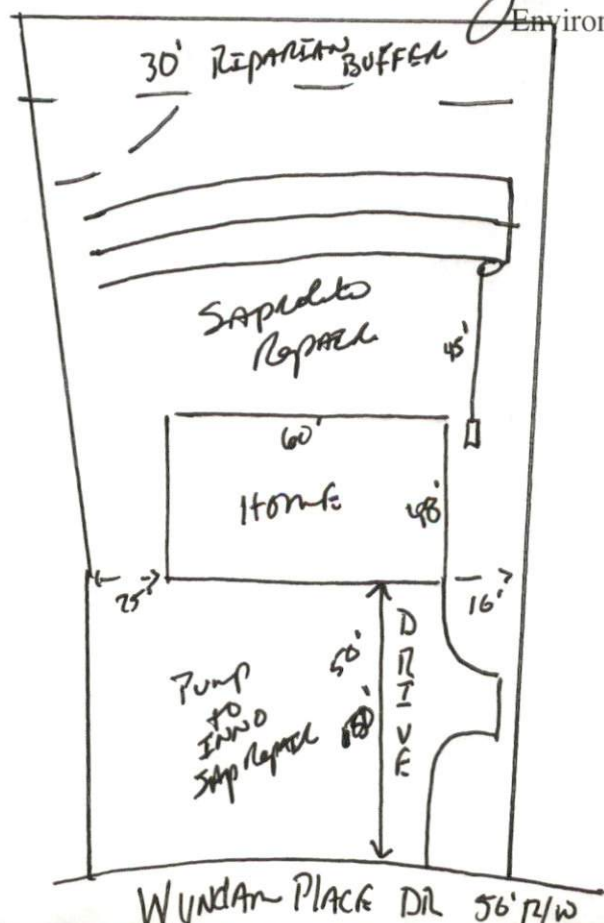 Environ
30' RIPARIAN BUFFER
Saprolite
Repair
45'
60'
HOME
48'
25'
16'
Pump
to
INNO
Sap Repair
50'
DRIVE
WYNDAM PLACE DR 50' R/W